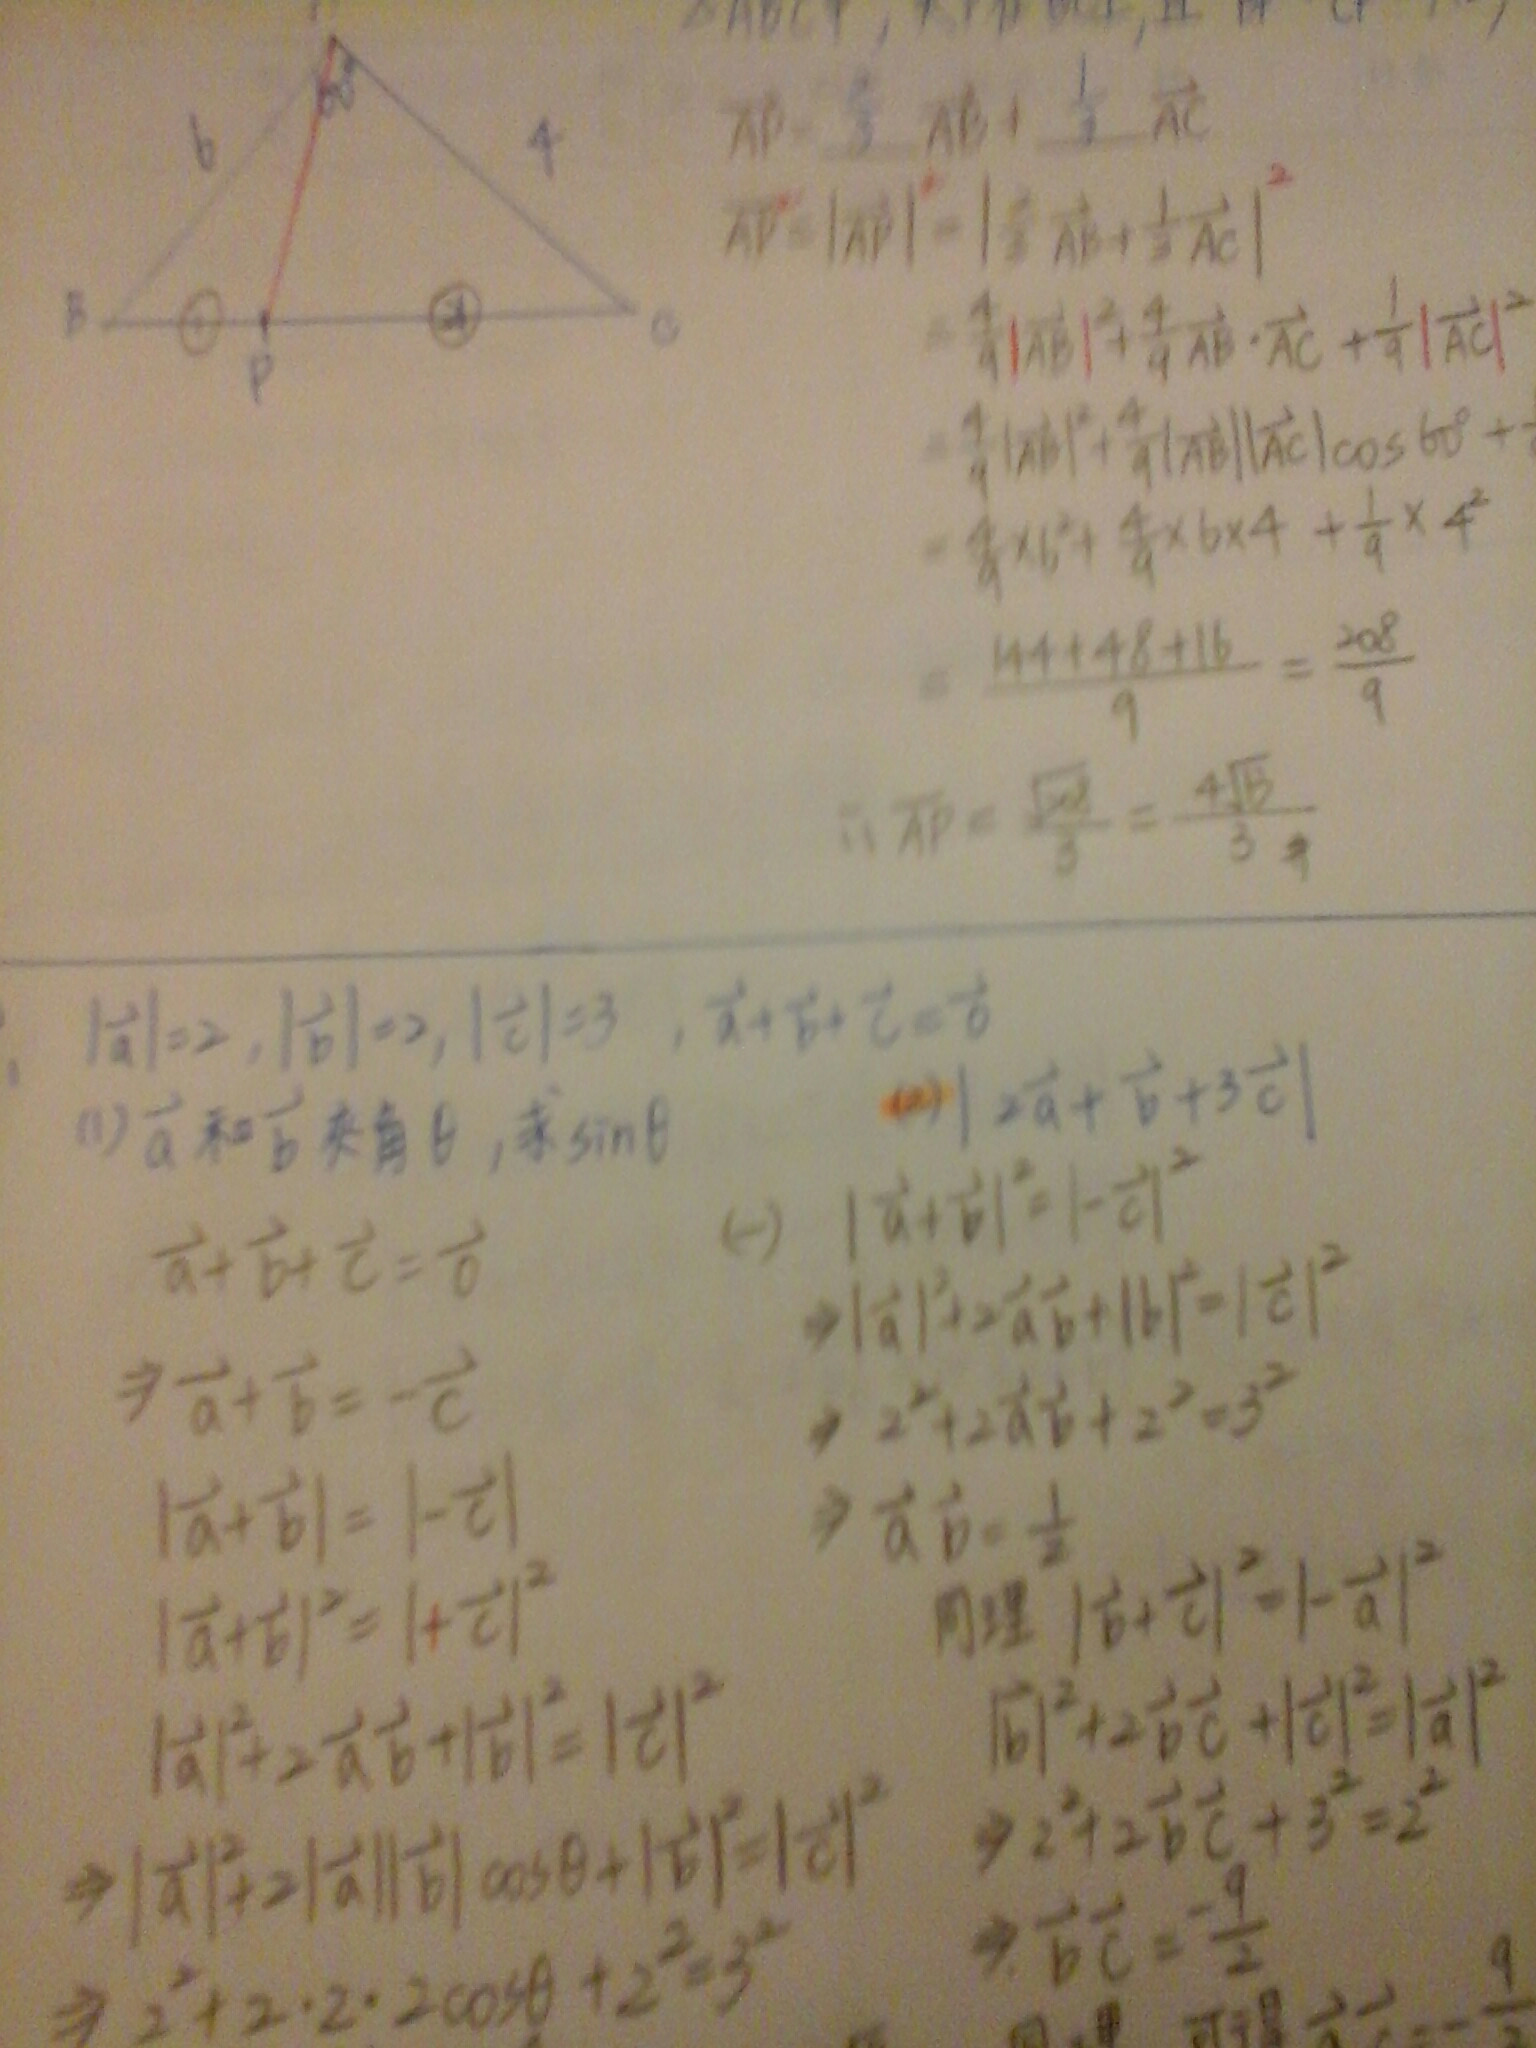 A
60°
6
4
B
①
②
C
P
AP = 2/3 AB + 1/3 AC
AP² = |AP|² = |2/3 AB + 1/3 AC|²
= 4/9 |AB|² + 4/9 AB · AC + 1/9 |AC|²
= 4/9 |AB|² + 4/9 |AB||AC| cos 60° +
= 4/9 × 6² + 4/9 × 6 × 4 + 1/9 × 4²
= (144+48+16)/9 = 208/9
∴ AP = √208/3 = 4√13/3
|a⃗|=2, |b⃗|=2, |c⃗|=3, a⃗+b⃗+c⃗=0⃗
(1) a⃗ 和 b⃗ 夾角θ, 求 sinθ
(2) |2a⃗+b⃗+3c⃗|
a⃗+b⃗+c⃗=0⃗
⇒ a⃗+b⃗=-c⃗
|a⃗+b⃗|=|-c⃗|
|a⃗+b⃗|²=|+c⃗|²
|a⃗|²+2a⃗b⃗+|b⃗|²=|c⃗|²
⇒ |a⃗|²+2|a⃗||b⃗|cosθ+|b⃗|²=|c⃗|²
⇒ 2²+2·2·2cosθ+2²=3²
(一) |a⃗+b⃗|²=|-c⃗|²
⇒ |a⃗|²+2a⃗b⃗+||b|²=|c⃗|²
⇒ 2²+2a⃗b⃗+2²=3²
⇒ a⃗b⃗=1/2
同理 |b⃗+c⃗|²=|-a⃗|²
|b⃗|²+2b⃗c⃗+|c⃗|²=|a⃗|²
⇒ 2²+2b⃗c⃗+3²=2²
⇒ b⃗c⃗=-9/2
同理 可得 a⃗c⃗=-9/2